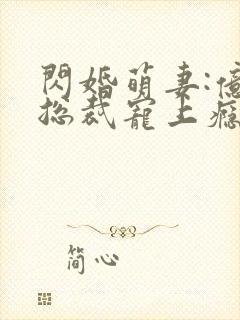 閃婚萌妻:億
總裁寵上癮
簡心